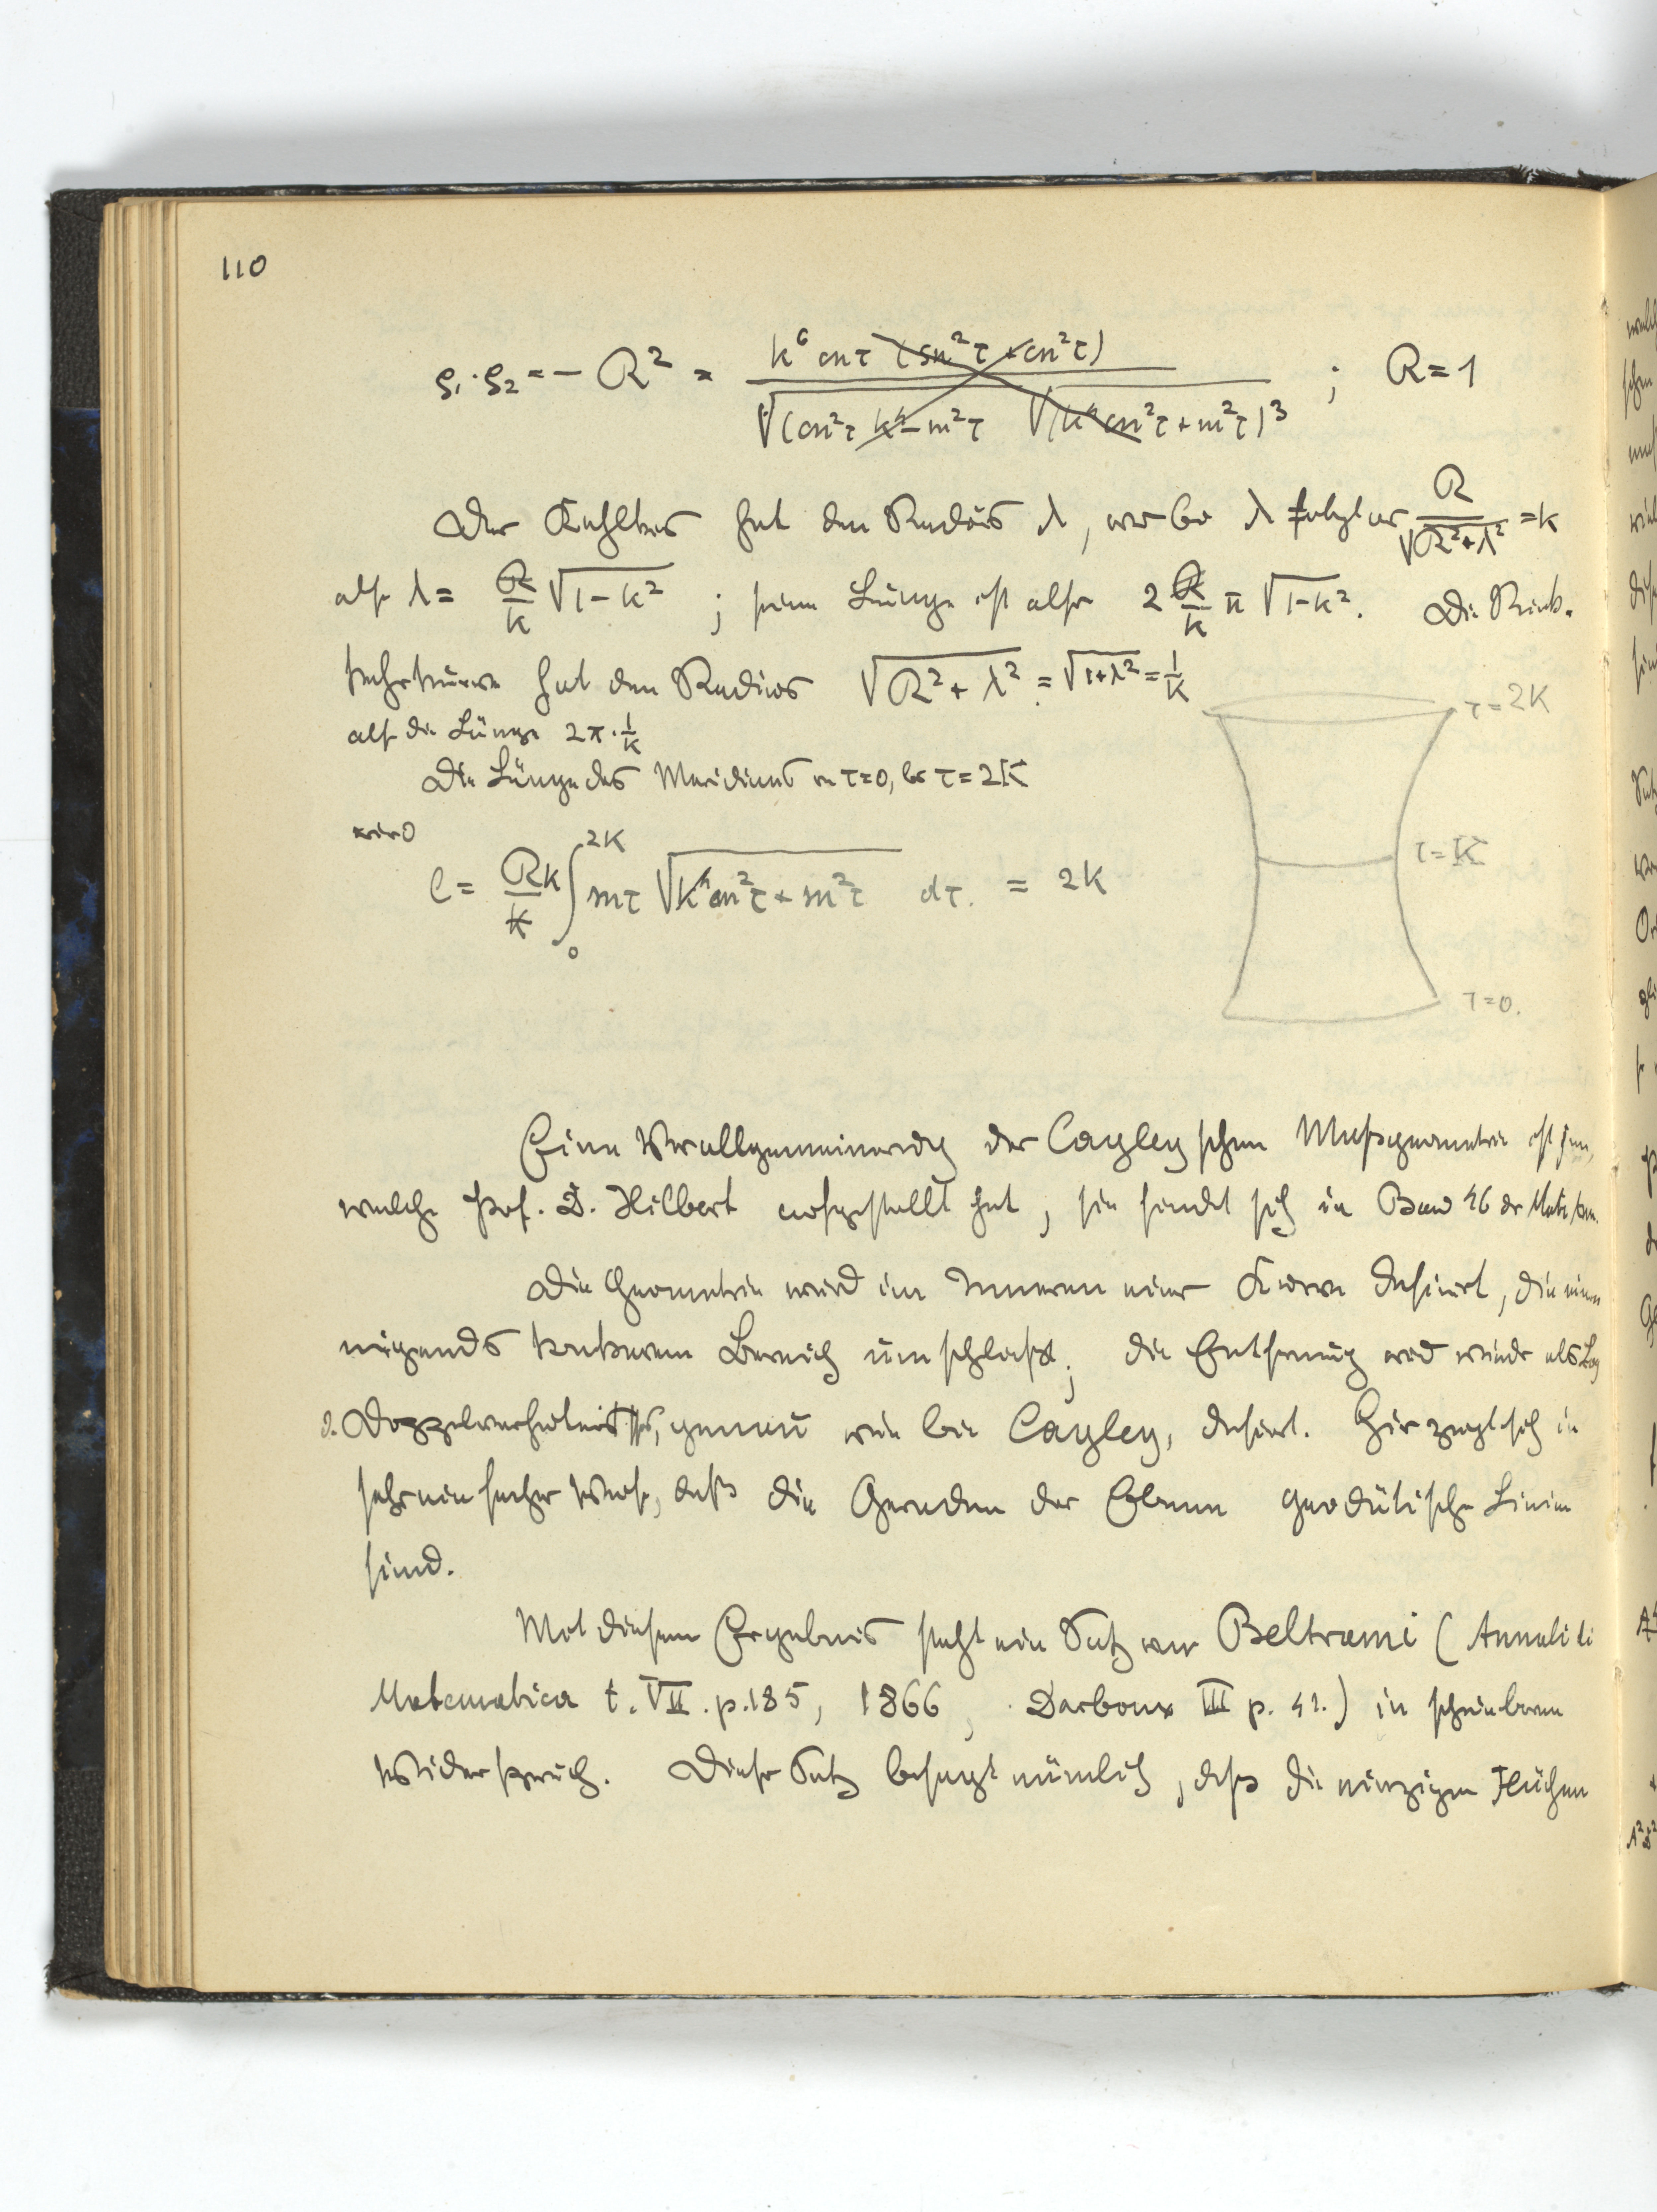 110
ϱ₁·ϱ₂ = − R² = k⁶ cn τ (sn²τ + cn²τ) / √(cn²τ k⁴ − sn²τ √(k⁴ cn²τ + sn²τ)³ ; R = 1
Der Kehlkreis hat den Radius λ, wobei λ folgt aus R/√(R²+λ²) = k
also λ = R/k √(1−k²) ; seine Länge ist also 2 R/k π √(1−k²). Die Rück-
kehrkurve hat den Radius √(R²+λ²) = √(1+λ²) = 1/k
also die Länge 2π·1/k
τ = 2K
Die Länge des Meridians von τ=0, bis τ=2K
wird
l = Rk/k ∫₀²ᴷ sn τ √(k⁴ cn²τ + sn²τ) dτ. = 2k
τ = K
τ = 0.
Eine Verallgemeinerung der Cayleyschen Massgeometrie ist jene,
welche Prof. D. Hilbert aufgestellt hat, sie findet sich in Band 46 der Math. Ann.
Die Geometrie wird im Inneren einer Kurve definiert, die einen
nirgends konkaven Bereich umschliesst; die Entfernung wird wieder als Log
d. Doppelverhältnisses, genau wie bei Cayley, definiert. Hier zeigt sich in
sehr einfacher Weise, dass die Geraden der Ebene geodätische Linien
sind.
Mit diesem Ergebnis steht ein Satz von Beltrami (Annali di
Matematica t. VII. p. 185, 1866, Darboux III p. 41.) in scheinbarem
Widerspruch. Dieser Satz besagt nämlich, dass die einzigen Flächen